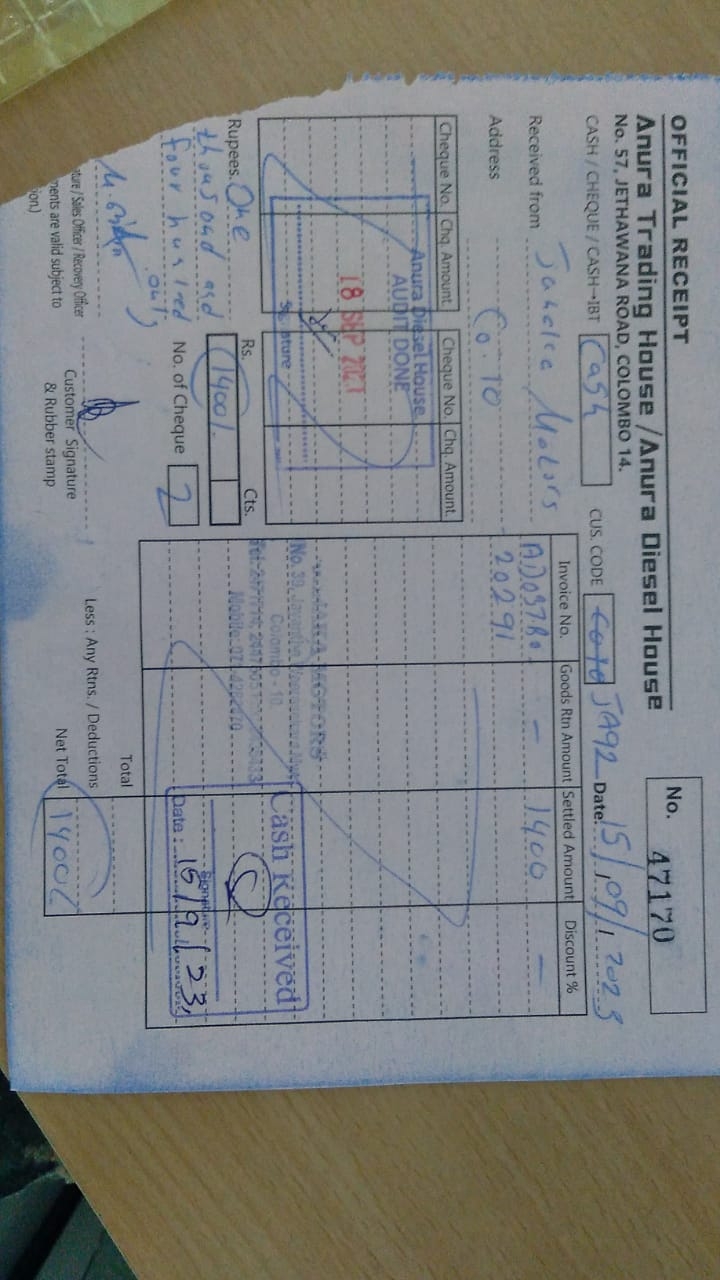 OFFICIAL RECEIPT
No. 47170
Anura Trading House / Anura Diesel House
No. 57, JETHAWANA ROAD, COLOMBO 14.
CASH / CHEQUE / CASH→IBT Cash CUS. CODE JA92 Date: 15/09/2023
Received from Motors
Address Co-10
Cheque No. Chq. Amount Cheque No. Chq. Amount
Invoice No. Goods Rtn Amount Settled Amount Discount %
- 1400 -
20291
Anura Diesel House
AUDIT DONE
18 SEP
Signature
MOTORS
No. 39,
Colombo - 10.
Cash Received
Signature
Date : 15/9/23
Rupees. One
thousand and
four hundred
only
Rs. Cts.
1400/
No. of Cheque
Total
Less : Any Rtns. / Deductions
Net Total 1400/
ture / Sales Officer / Recovery Officer
ments are valid subject to
ion.)
Customer Signature
& Rubber stamp